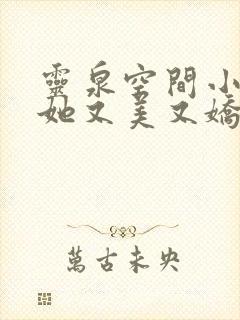 靈泉空間小
她又美又嬌
萬古未央